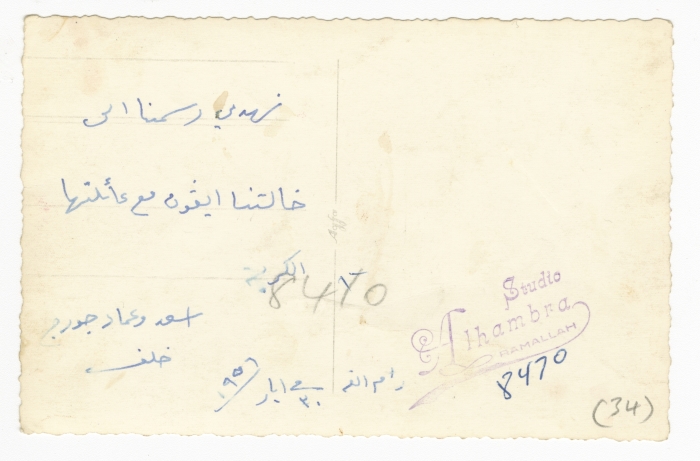 نهدي رسمنا الى
خالتنا ايڤون مع عائلتها
الكريمة
8470
اسعد وعماد جورج
خلف
رام الله في ٣٠ ايار
Agfa
Studio
Alhambra
RAMALLAH
8470
(34)